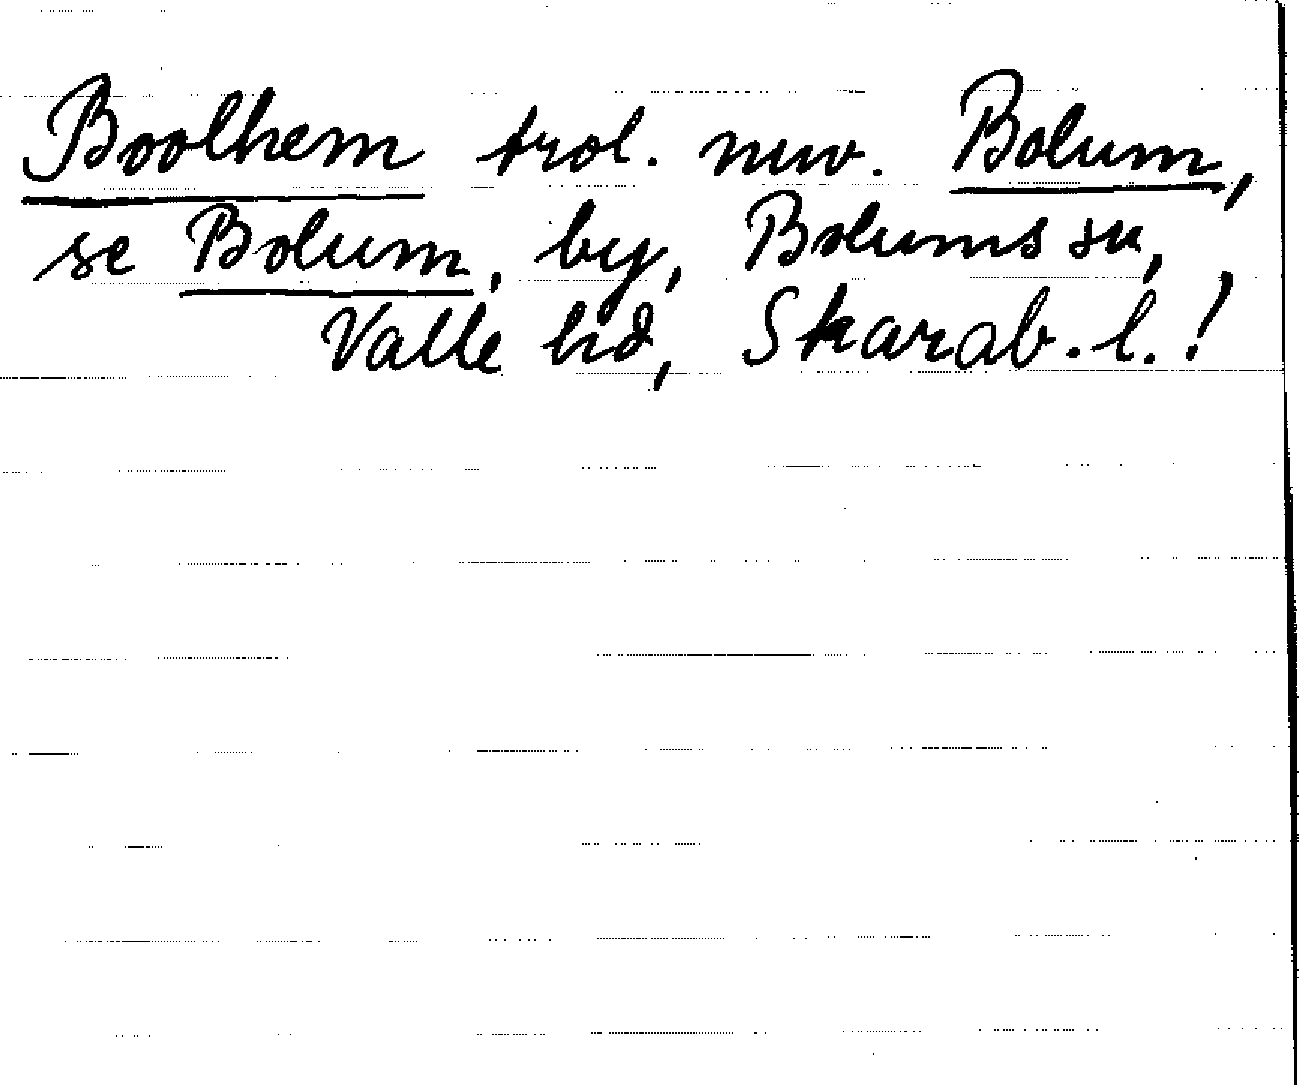 Boolhem trol. nuv. Bolum,
se Bolum, by, Bolums sn,
Valle hd, Skarab. l.!